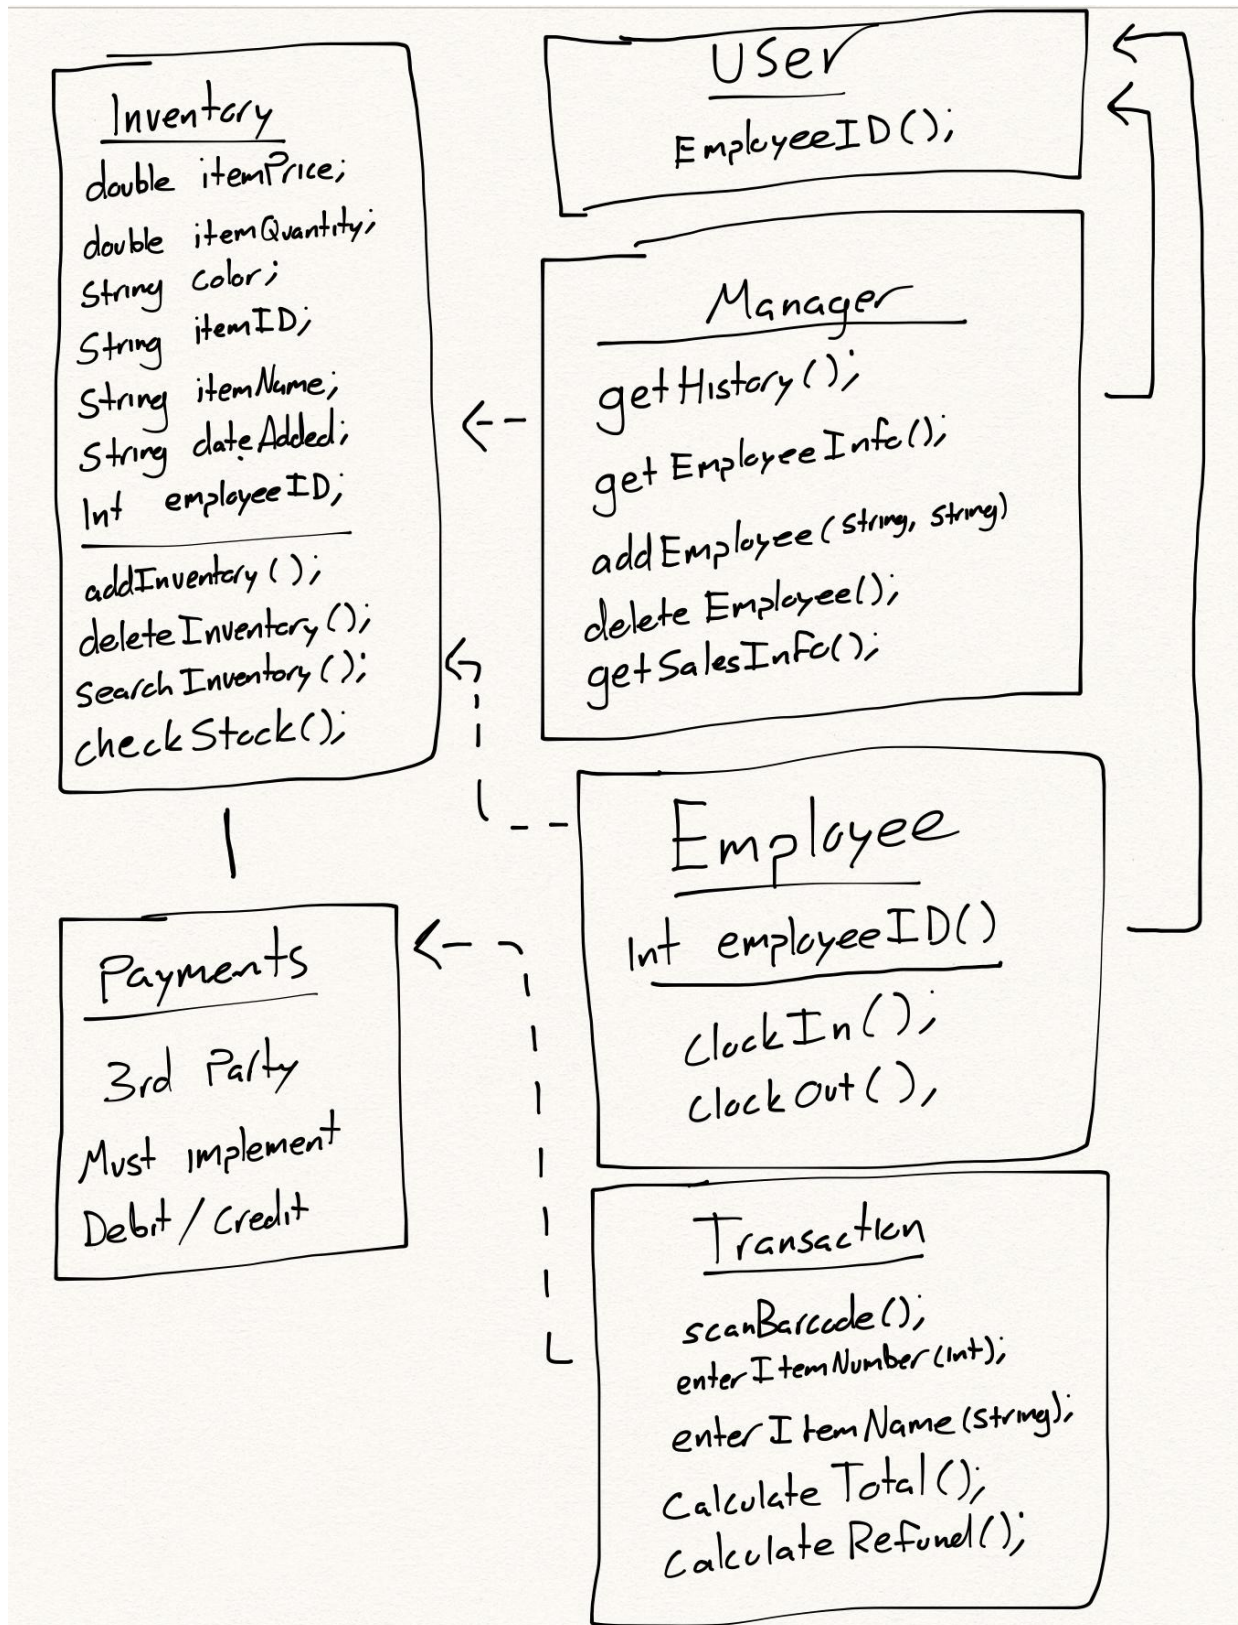 Inventory
double itemPrice;
double itemQuantity;
String color;
String itemID;
String itemName;
String dateAdded;
Int employeeID;
addInventory();
deleteInventory();
searchInventory();
checkStock();
Payments
3rd Party
Must implement
Debit/Credit
User
EmployeeID();
Manager
getHistory();
getEmployeeInfo();
addEmployee(string, string)
deleteEmployee();
getSalesInfo();
Employee
Int employeeID()
ClockIn();
ClockOut(),
Transaction
scanBarcode();
enterItemNumber(int);
enterItemName(string);
Calculate Total();
Calculate Refund();